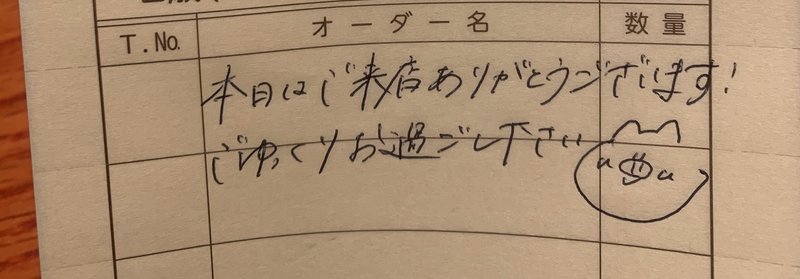 T.No. オーダー名 数量
本日はご来店ありがとうございます!
ごゆっくりお過ごし下さい